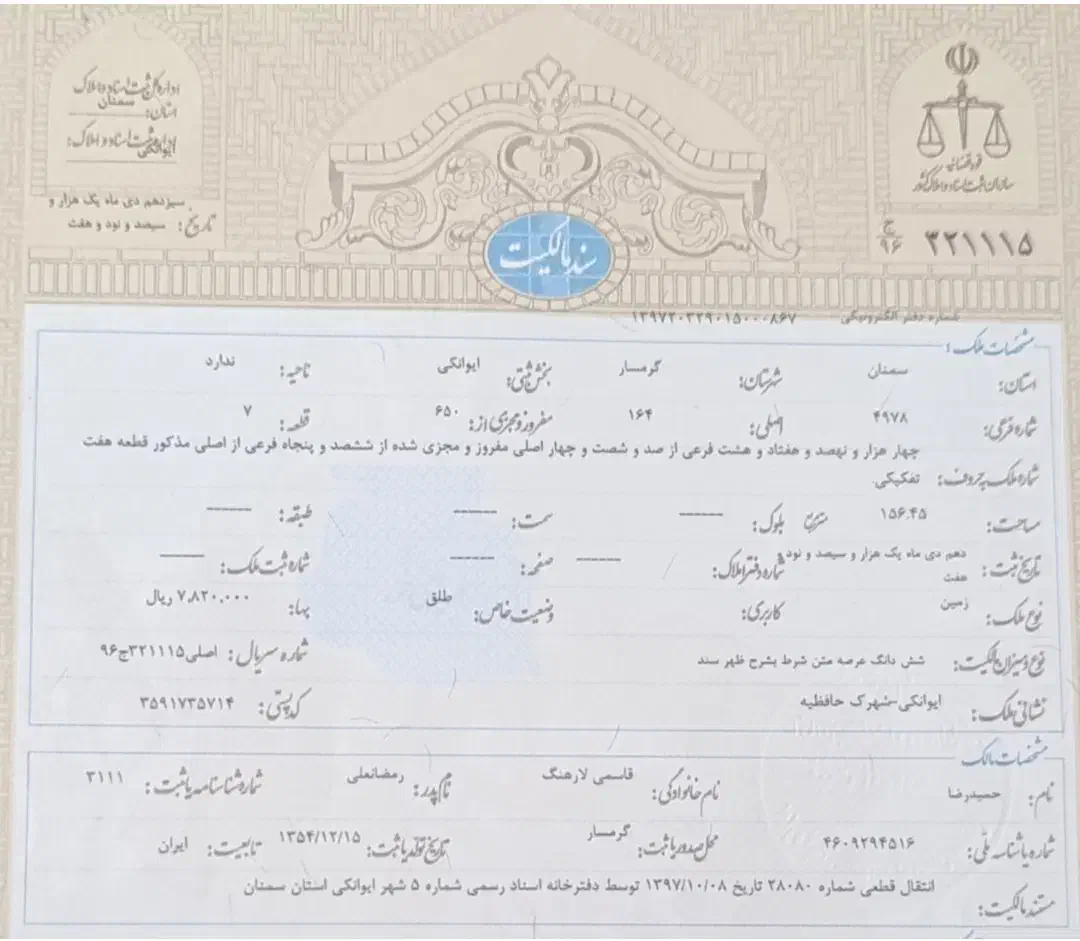 قوه قضائیه
سازمان ثبت اسناد و املاک کشور
۳۲۱۱۱۵ ج ۹۶
اداره کل ثبت اسناد و املاک
استان: سمنان
اداره ثبت اسناد و املاک: ایوانکی
تاریخ: سیزدهم دی ماه یک هزار و
سیصد و نود و هفت
سند مالکیت
شماره دفتر الکترونیکی ۱۳۹۷۲۰۳۲۹۰۱۵۰۰۰۸۶۷
مشخصات ملک:
استان: سمنان شهرستان: گرمسار بخش ثبتی: ایوانکی ناحیه: ندارد
شماره فرعی: ۴۹۷۸ اصلی: ۱۶۴ مفروز و مجزی از: ۶۵۰ قطعه: ۷
چهار هزار و نهصد و هفتاد و هشت فرعی از صد و شصت و چهار اصلی مفروز و مجزی شده از ششصد و پنجاه فرعی از اصلی مذکور قطعه هفت
شماره ملک به حروف: تفکیکی.
مساحت: ۱۵۶.۴۵ مترمربع بلوک: ------ سمت: ------ طبقه: ------
تاریخ ثبت: دهم دی ماه یک هزار و سیصد و نود و شماره دفتر املاک: ------ صفحه: ------ شماره ثبت ملک: ------
هفت
نوع ملک: زمین کاربری: وضعیت خاص: طلق بهاء: ۷,۸۲۰,۰۰۰ ریال
نوع و میزان مالکیت: شش دانگ عرصه متن شرط بشرح ظهر سند شماره سریال: اصلی۳۲۱۱۱۵ج۹۶
نشانی ملک: ایوانکی-شهرک حافظیه کد پستی: ۳۵۹۱۷۳۵۷۱۴
مشخصات مالک:
نام: حمیدرضا نام خانوادگی: قاسمی لارهنگ نام پدر: رمضانعلی شماره شناسنامه یا ثبت: ۳۱۱۱
شماره یا شناسه ملی: ۴۶۰۹۲۹۴۵۱۶ محل صدور یا ثبت: گرمسار تاریخ تولد یا ثبت: ۱۳۵۴/۱۲/۱۵ تابعیت: ایران
مستند مالکیت: انتقال قطعی شماره ۲۸۰۸۰ تاریخ ۱۳۹۷/۱۰/۰۸ توسط دفترخانه اسناد رسمی شماره ۵ شهر ایوانکی استان سمنان